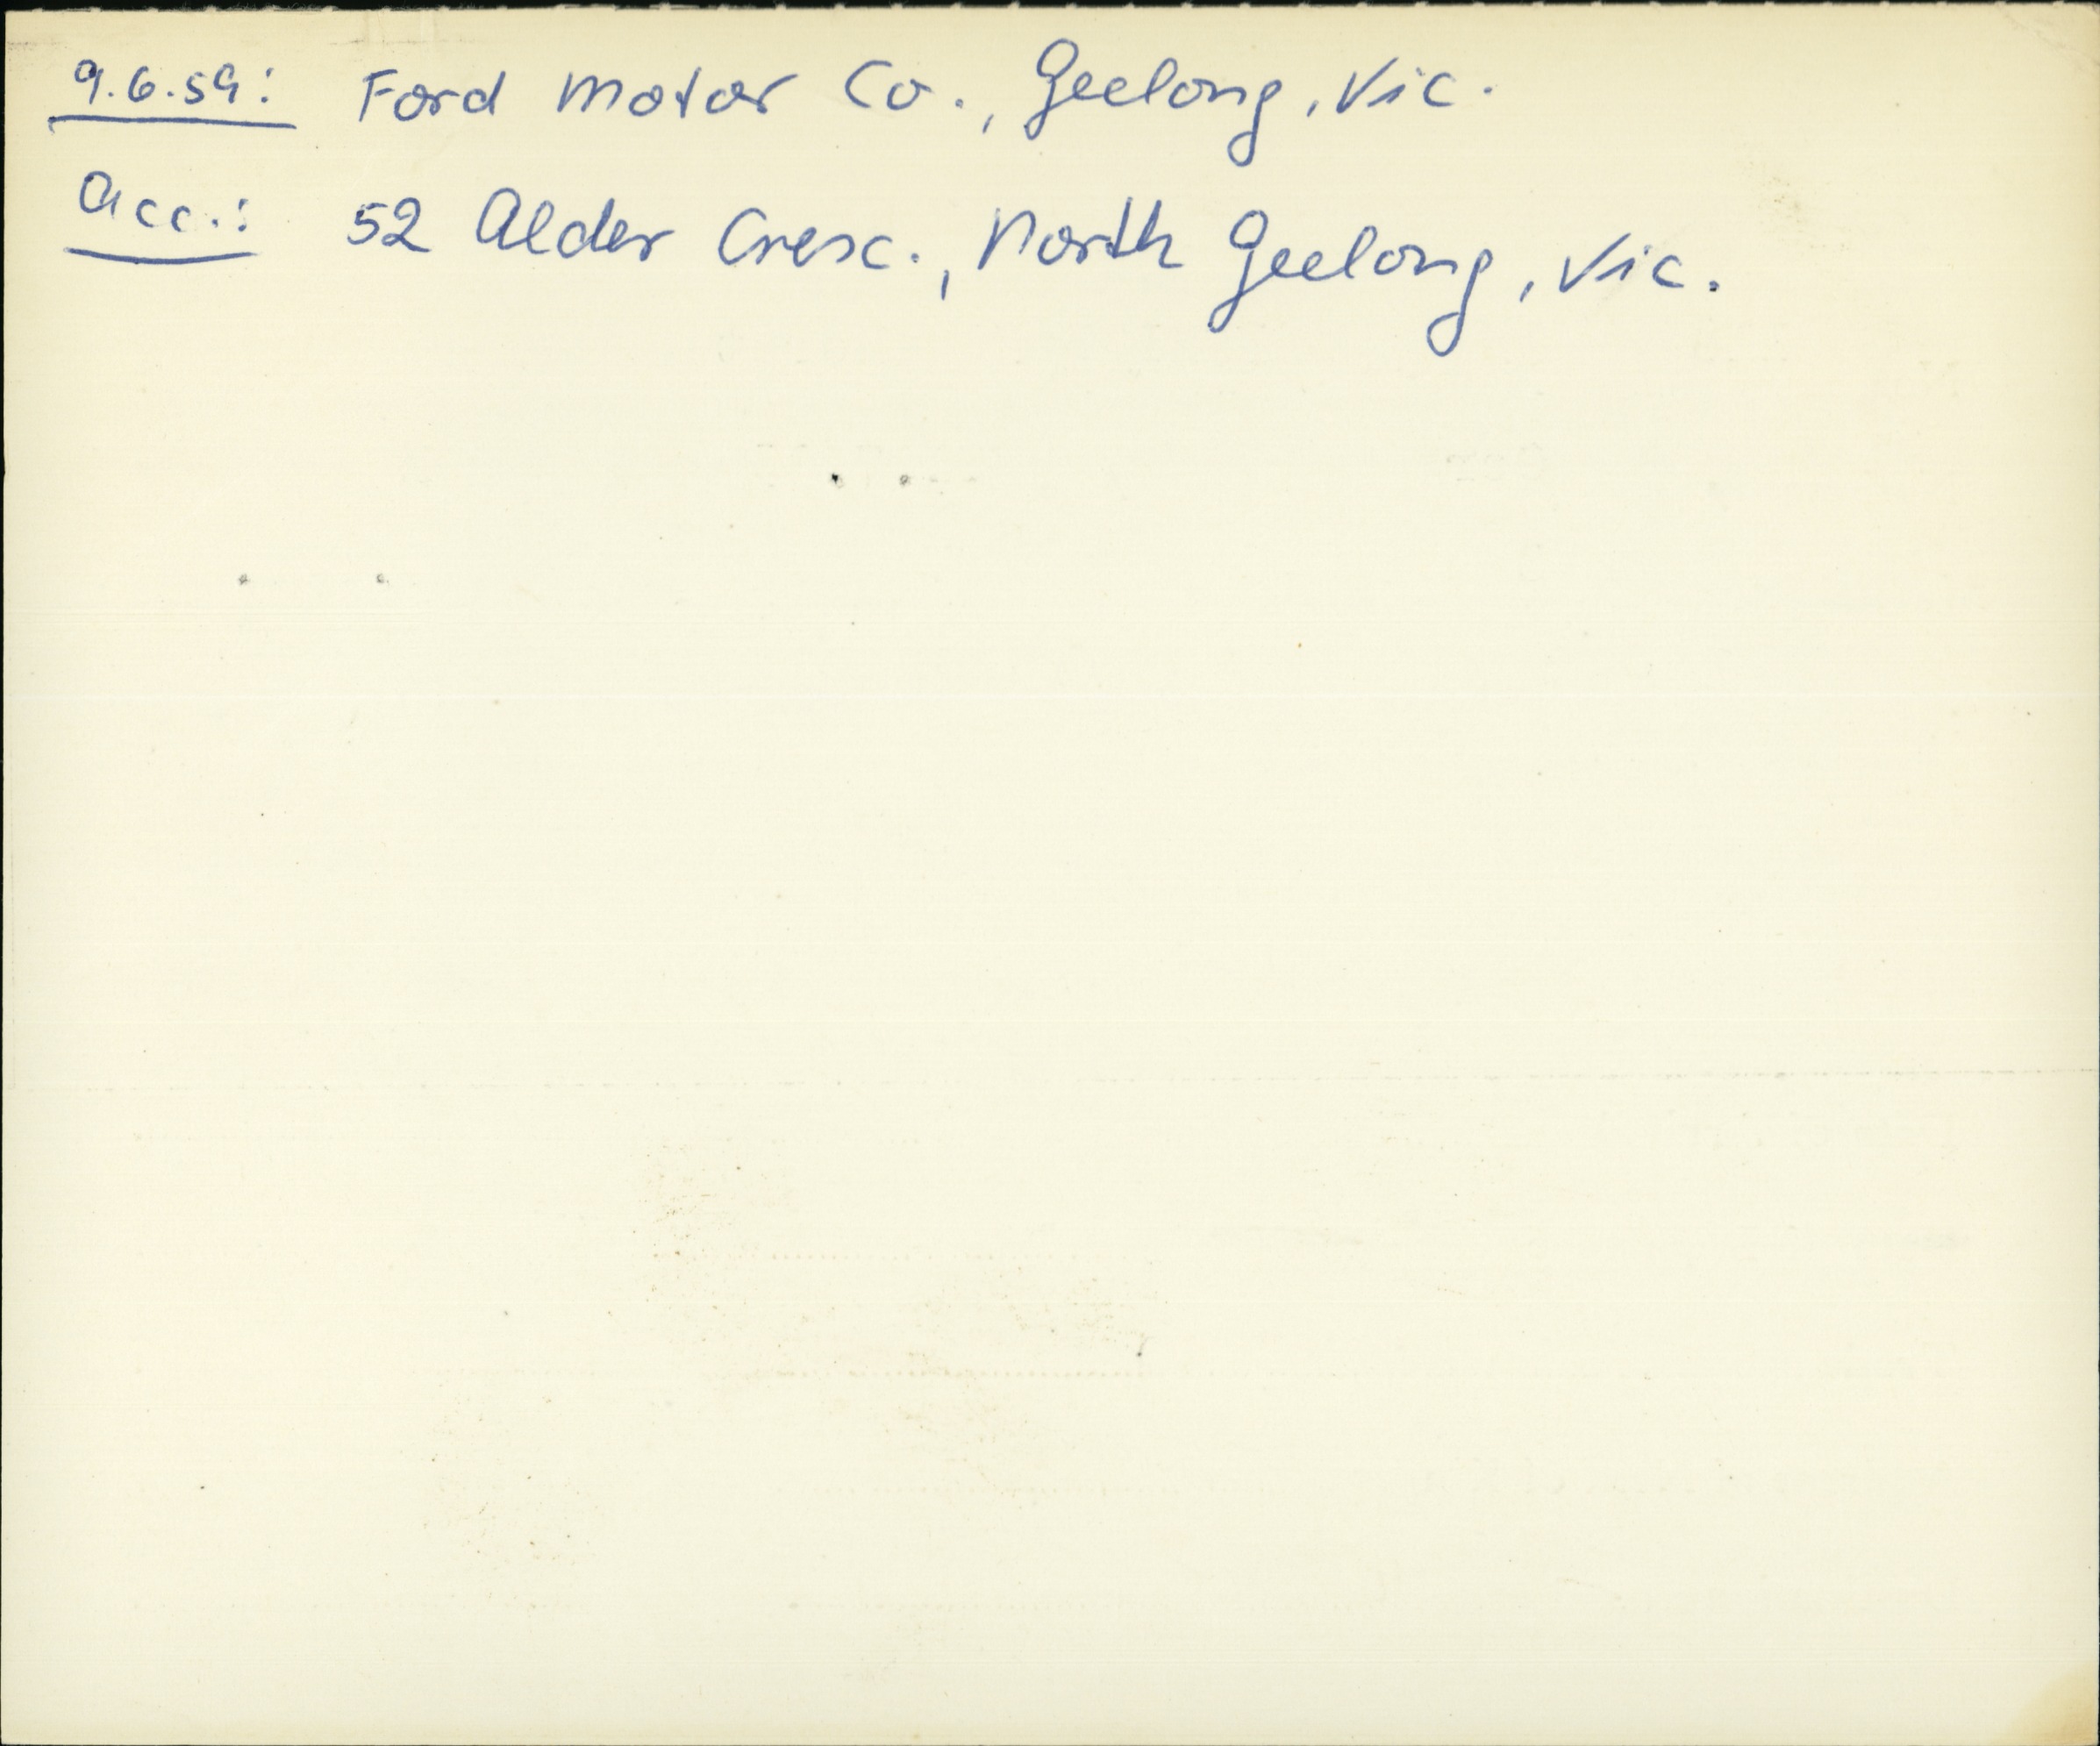 9.6.59: Ford Motor Co., Geelong, Vic.
Acc.: 52 Alder Cresc., North Geelong, Vic.